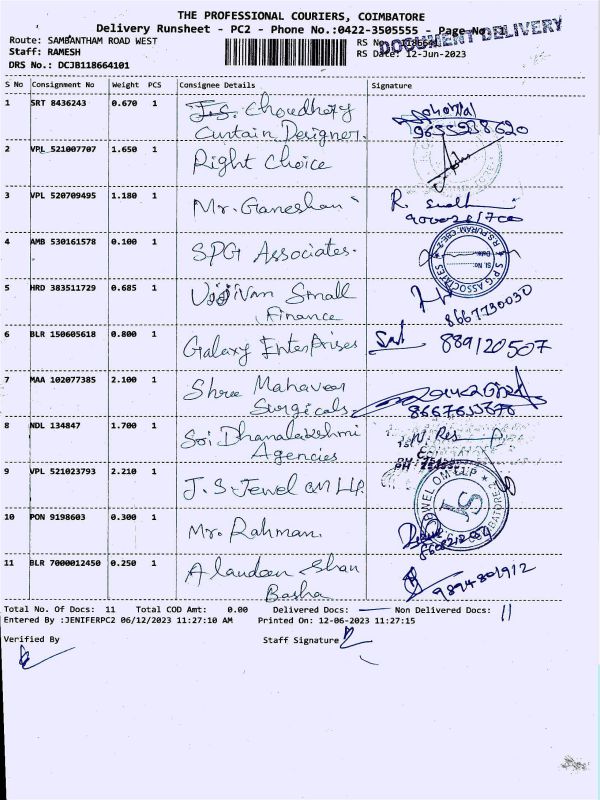 THE PROFESSIONAL COURIERS, COIMBATORE
Delivery Runsheet - PC2 - Phone No.:0422-3505555 - Page No.
DOCUMENT DELIVERY
Route: SAMBANTHAM ROAD WEST
RS No
Staff: RAMESH
RS Date: 12-Jun-2023
DRS No.: DCJB118664101
S No Consignment No Weight PCS Consignee Details Signature
1 SRT 8436243 0.670 1 J.S. Choudhary
Curtain Designer.
2 VPL 521007707 1.650 1 Right Choice
3 VPL 520709495 1.180 1 Mr. Ganeshan R.
4 AMB 530161578 0.100 1 SPG Associates.
SPG ASSOCIATES R.S PURAM, CBE-2
Sl. No:
Date:
5 HRD 383511729 0.685 1 Ujjivan Small
Finance 8667730030
6 BLR 150605618 0.800 1 Galaxy Enterprises 889120507
7 MAA 102077385 2.100 1 Shree Mahaveer
Surgicals
8 NDL 134847 1.700 1 Sri Dhanalakshmi
Agencies
9 VPL 521023793 2.210 1 J.S Jewel OM LLP.
JS
10 PON 9198603 0.300 1 Mr. Rahman.
11 BLR 7000012450 0.250 1 Alaudeen Shan
Basha 9894801912
Total No. Of Docs: 11 Total COD Amt: 0.00 Delivered Docs: — Non Delivered Docs: 11
Entered By :JENIFERPC2 06/12/2023 11:27:10 AM Printed On: 12-06-2023 11:27:15
Verified By Staff Signature